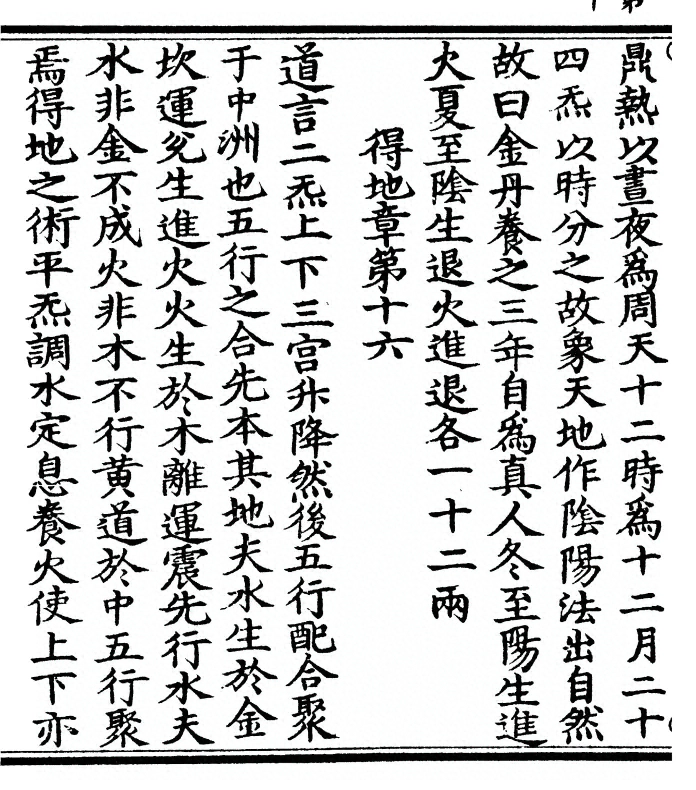 鼎熱以晝夜爲周天十二時爲十二月二十
四炁以時分之故象天地作陰陽法出自然
故曰金丹養之三年自爲真人冬至陽生進
火夏至陰生退火進退各一十二兩
得地章第十六
道言二炁上下三宮升降然後五行配合聚
于中洲也五行之合先本其地夫水生於金
坎運兊生進火火生於木離運震先行水夫
水非金不成火非木不行黄道於中五行聚
焉得地之術平炁調水定息養火使上下亦